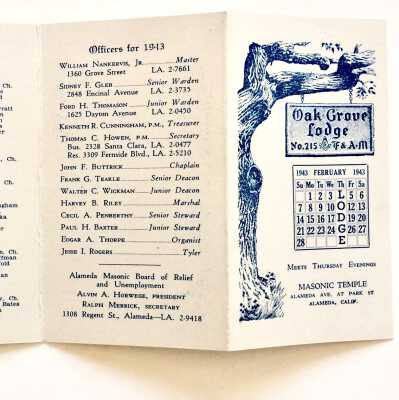 Officers for 1943
William Nankervis, Jr. Master
1360 Grove Street LA. 2-7661
Sidney F. Gleb Senior Warden
2848 Encinal Avenue LA. 2-3735
Ford H. Thomason Junior Warden
1625 Dayton Avenue LA. 2-0450
Kenneth R. Cunningham, P.M., Treasurer
Thomas C. Howen, P.M. Secretary
Bus. 2328 Santa Clara, LA. 2-0477
Res. 3309 Fernside Blvd., LA. 2-5210
John F. Buttrick Chaplain
Frank G. Teakle Senior Deacon
Walter C. Wickman Junior Deacon
Harvey B. Riley Marshal
Cecil A. Penberthy Senior Steward
Paul H. Baxter Junior Steward
Edgar A. Thorpe Organist
Jesse I. Rogers Tyler
Alameda Masonic Board of Relief
and Unemployment
Alvin A. Horwege, President
Ralph Merrick, Secretary
1308 Regent St., Alameda—LA. 2-9418
Oak Grove
Lodge
No. 215 F & A·M
1943 FEBRUARY 1943
Su Mo Tu We Th Fr Sa
1 2 3 L 5 6
7 8 9 10 O 12 13
14 15 16 17 D 19 20
21 22 23 24 G 26 27
28 E
Meets Thursday Evenings
MASONIC TEMPLE
Alameda Ave. at Park St
Alameda, Calif.